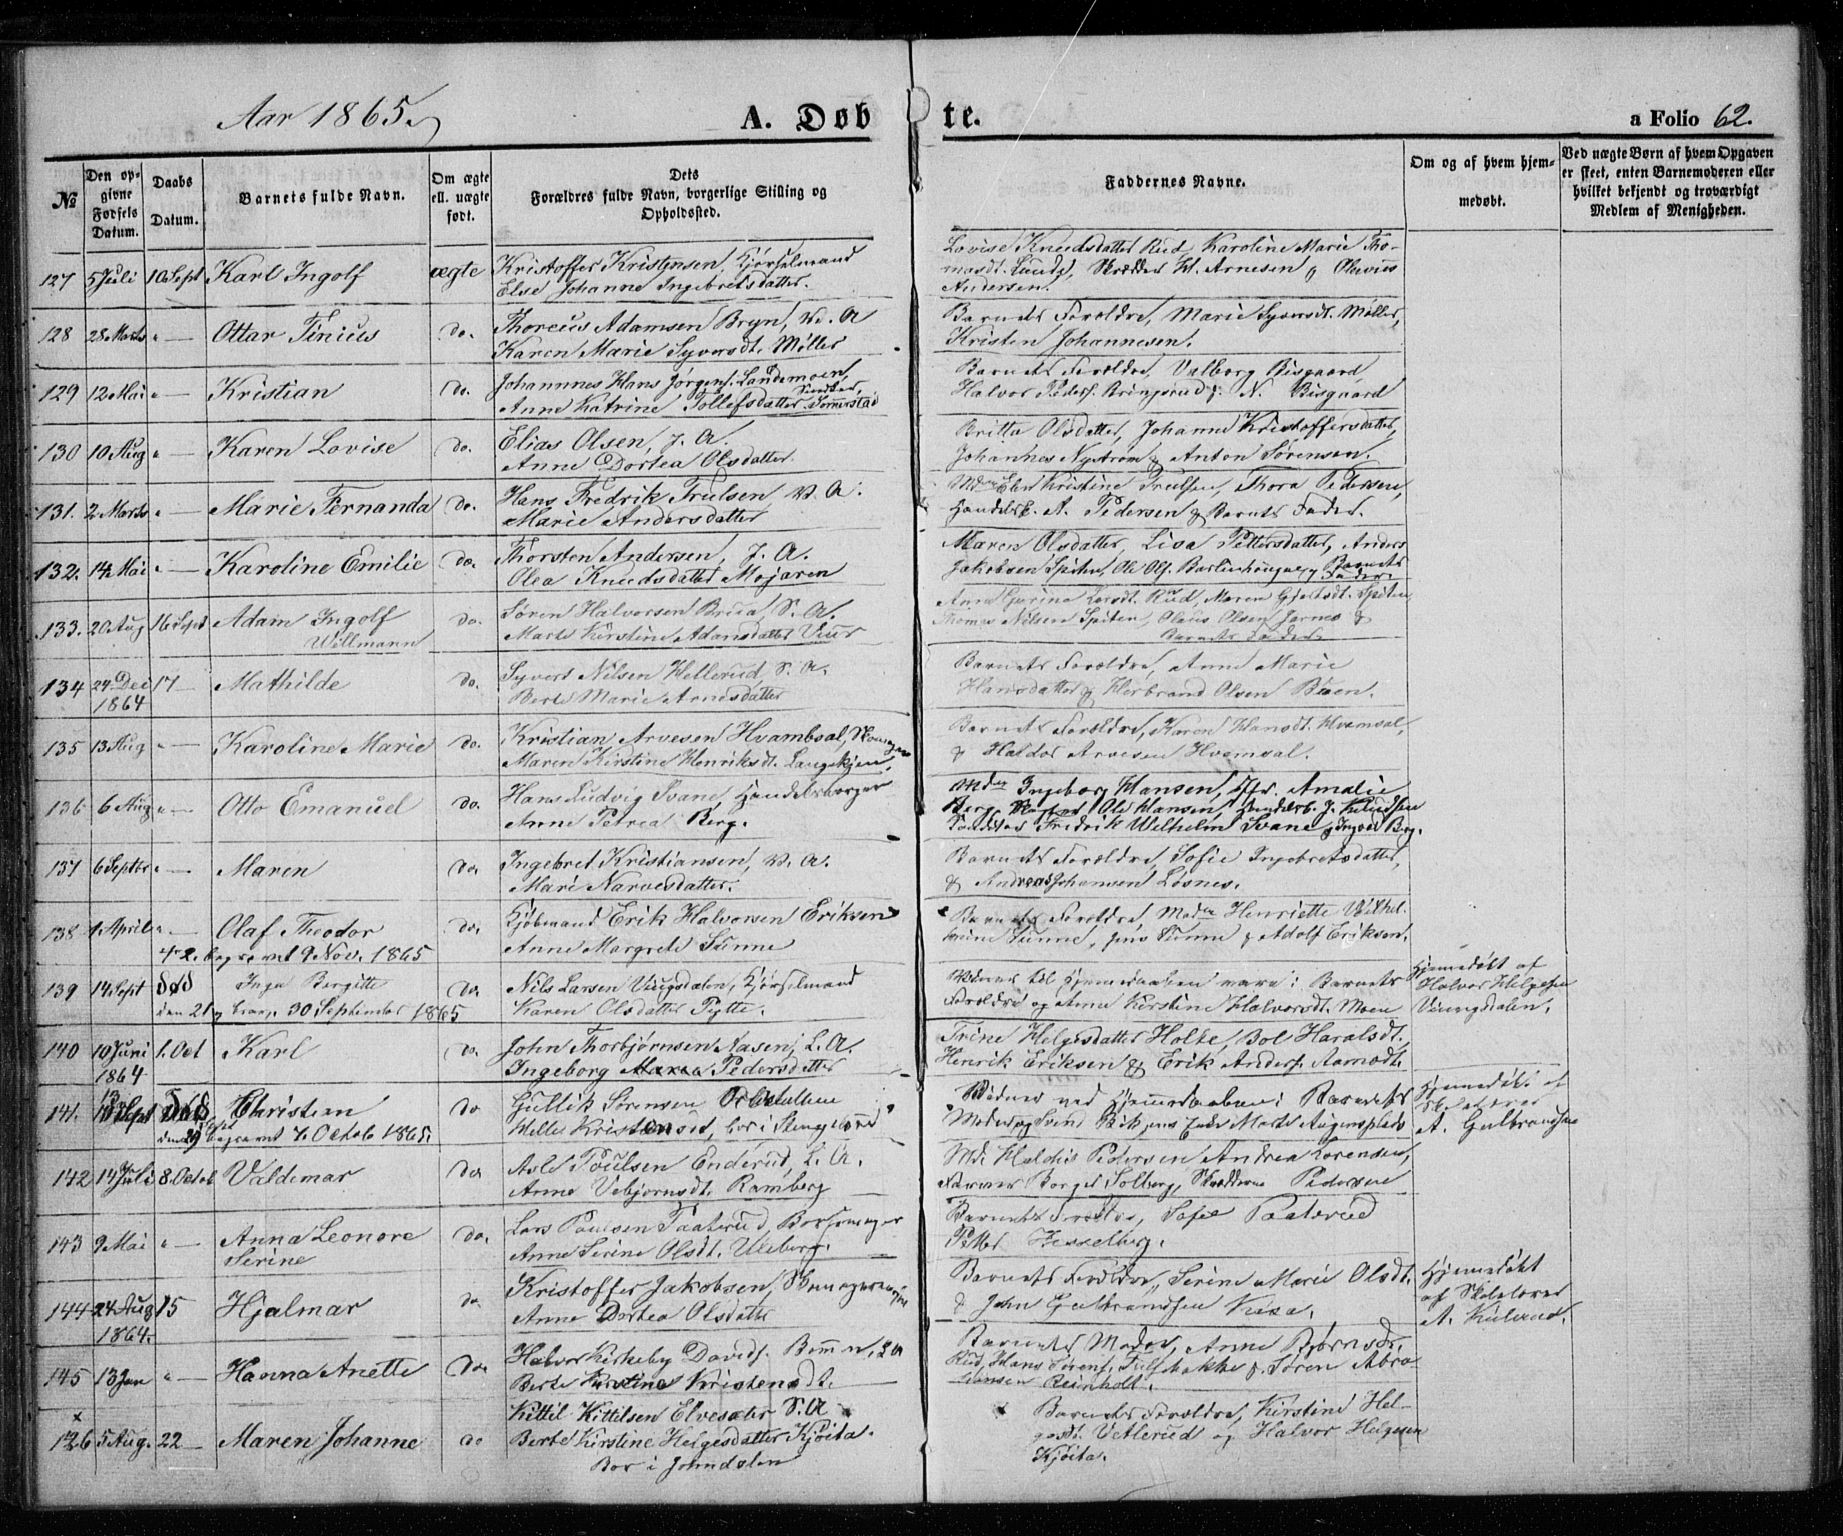 Aar 1865.
A. Døbte.
a Folio 62.
№
Den opgivne Fødsels Datum.
Daabs Datum.
Barnets fulde Navn.
Om ægte ell. uægte født.
Dets Forældres fulde Navn, borgerlige Stilling og Opholdssted.
Faddernes Navne.
Om og af hvem hjemmedøbt.
Ved uægte Børn af hvem Opgaven er skeet, enten Barnemoderen eller hvilket bekjendt og troværdigt Medlem af Menigheden.
127 5 Juli 10 Sept Karl Ingolf ægte Kristoffer Kristensen, Kjørselmand
Else Johanne Ingebretsdatter.
Lovise Knudsdatter Rud, Karoline Marie Tho-
masdt. Lunde, Skrædder H. Arnesen & Olavius
Andersen.
128 28 Marts " — Ottar Tinius do. Thoreus Adamsen Bryn, V. A
Karen Marie Syversdt. Møller
Barnets Forældre, Marie Syversdt. Møller,
Kristen Johannesen.
129 12 Mai " — Kristian do. Johannnes Hans Jørgens. Landemoen,
Anne Katrine Tollefsdatter
Barnets Forældre, Valborg Bisgaard,
Halvor Peders. Bringsrud & N. Bisgaard
130 10 Aug " — Karen Lovise do. Elias Olsen, J. A.
Anne Dortea Olsdatter
Britta Olsdatter, Johanne Kristoffersdatter,
Johannes Nystrøm & Anton Sørensen.
131. 2 Marts " — Marie Fernanda do. Hans Fredrik Trulsen V. A.
Marie Andersdatter
Mdm Elen Kristine Trulsen, Thora Pedersen,
Handelsb. A. Pedersen & Barnets Fader.
132. 14 Mai " — Karoline Emilie do. Thorsten Andersen, J. A.
Olea Knudsdatter Mojaren
Maren Olsdatter, Lisa Pettersdatter, Anders
Jakobsen Spiten, Ole Ols. Barlinhougen & Barnets
Fader.
133. 20 Aug 16 Sept Adam Ingolf
Willmann do. Søren Halvorsen S. A.
Marte Kirstine Adamsdatter
Anne Gurine Larsdt. Rud, Maren Gjertsdt. Spiten
Thomas Nilsen Spiten, Olaus Olsen &
Barnets Fader.
134 24 Dec
1864 17 — Mathilde do. Syvert Nilsen Hellerud, S. A.
Berte Marie Arnesdatter
Barnets Forældre, Anne Marie
Hansdatter & Herbrand Olsen Bøen.
135 13 Aug " — Karoline Marie do. Kristian Arvesen Hvambsal, Skomager
Maren Kirstine Henriksdt. Langekjen,
Barnets Forældre, Karen Hansdt. Hvamsal,
& Haldor Arvesen Hvamsal.
136 6 Aug " — Otto Emanuel do. Hans Ludvig Svane, Handelsborger
Anne Petrea Berg.
Mdm Ingeborg Hansen, Jfr. Amalie
Berg, Ole Hansen, Handelsb. J. Knudsen
Fredrik Wilhelm Svane & Ingvald Berg.
137 6 Septbr " — Maren do. Ingebret Kristiansen, V. A.
Mari Narvesdatter.
Barnets Forældre, Sofie Ingebretsdatter,
& Andreas Johansen Løsnes.
138 1 April " — Olaf Theodor do. Kjøbmand Erik Halvorsen Eriksen
Anne Margrete Sunne
begravet 9 Nov. 1865
Barnets Forældre, Madm Henriette Vilhel-
mine Sunne, Jens Sunne & Adolf Eriksen.
139 14 Sept død Inga Bergitte do. Nils Larsen Vungsdalen, Kjørselmand
den 21 og begr. 30 September 1865 Karen Olsdatter Pytte.
Vidner til Hjemmedaaben vare: Barnets
Forældre og Anne Kirstine Halvorsdt. Moen
Hjemmedøbt af
Halvor Helgesen
Vungsdalen.
140 10 Juni
1864 1. Oct Karl do. John Thorbjørnsen Aasen, L. A.
Ingeborg Marea Pedersdatter
Trine Helgesdatter Holte, Bol Haralsdt.
Henrik Eriksen & Erik Anders. Aamodt.
141. Sept Død Christian do Gullik Sørensen
den 29 Sept begravet 7 Octob 1865. bor i Stengelsrud
Vidner ved Hjemmedaaben: Barnets
Moder og Marte Augensplads
Hjemmedøbt af
Skolelærer
A. Gulbrandsen
142 14 Juli 8. Octob Valdemar do. Asle Poulsen Enderud, L. A.
Anne Vebjørnsdt. Ramberg
Md. Haldis Pedersen Andrea Lorensen,
Farver Borger Solberg, Skrædder Pedersen
143 9 Mai " — Anna Leonore
Serine do. Lars Paulsen Taaterud, Børsemager
Anne Serine Olsdt. Uleberg.
Barnets Forældre, Sofie Taaterud
Petter Hesselberg.
144 24 Aug
1864. 15 Hjalmar do. Kristoffer Jakobsen, Skomagersvend
Anne Dortea Olsdatter
Barnets Forældre, Serine Marie Olsdt.
& John Gulbrandsen
Hjemmedøbt
af Skolelærer
A.
145 13 Jan " — Hanna Anette do. Halvor Kirkeby Davids.
Berte Kirstine Kristensdt.
Barnets Moder, Anne Bjørnsdt.
Rud, Hans Sørens. & Søren Abra-
hamsen Reinholt.
×
126 5 Aug. 22 — Maren Johanne do Kittil Kittilsen Elvesæter S. A
Berte Kirstine Helgesdatter Kjøita.
Bor i Jondalen
Barnets Forældre, Kirstine Hel-
gesdt. Vetlerud og Halvor Helgesen
Kjøita.